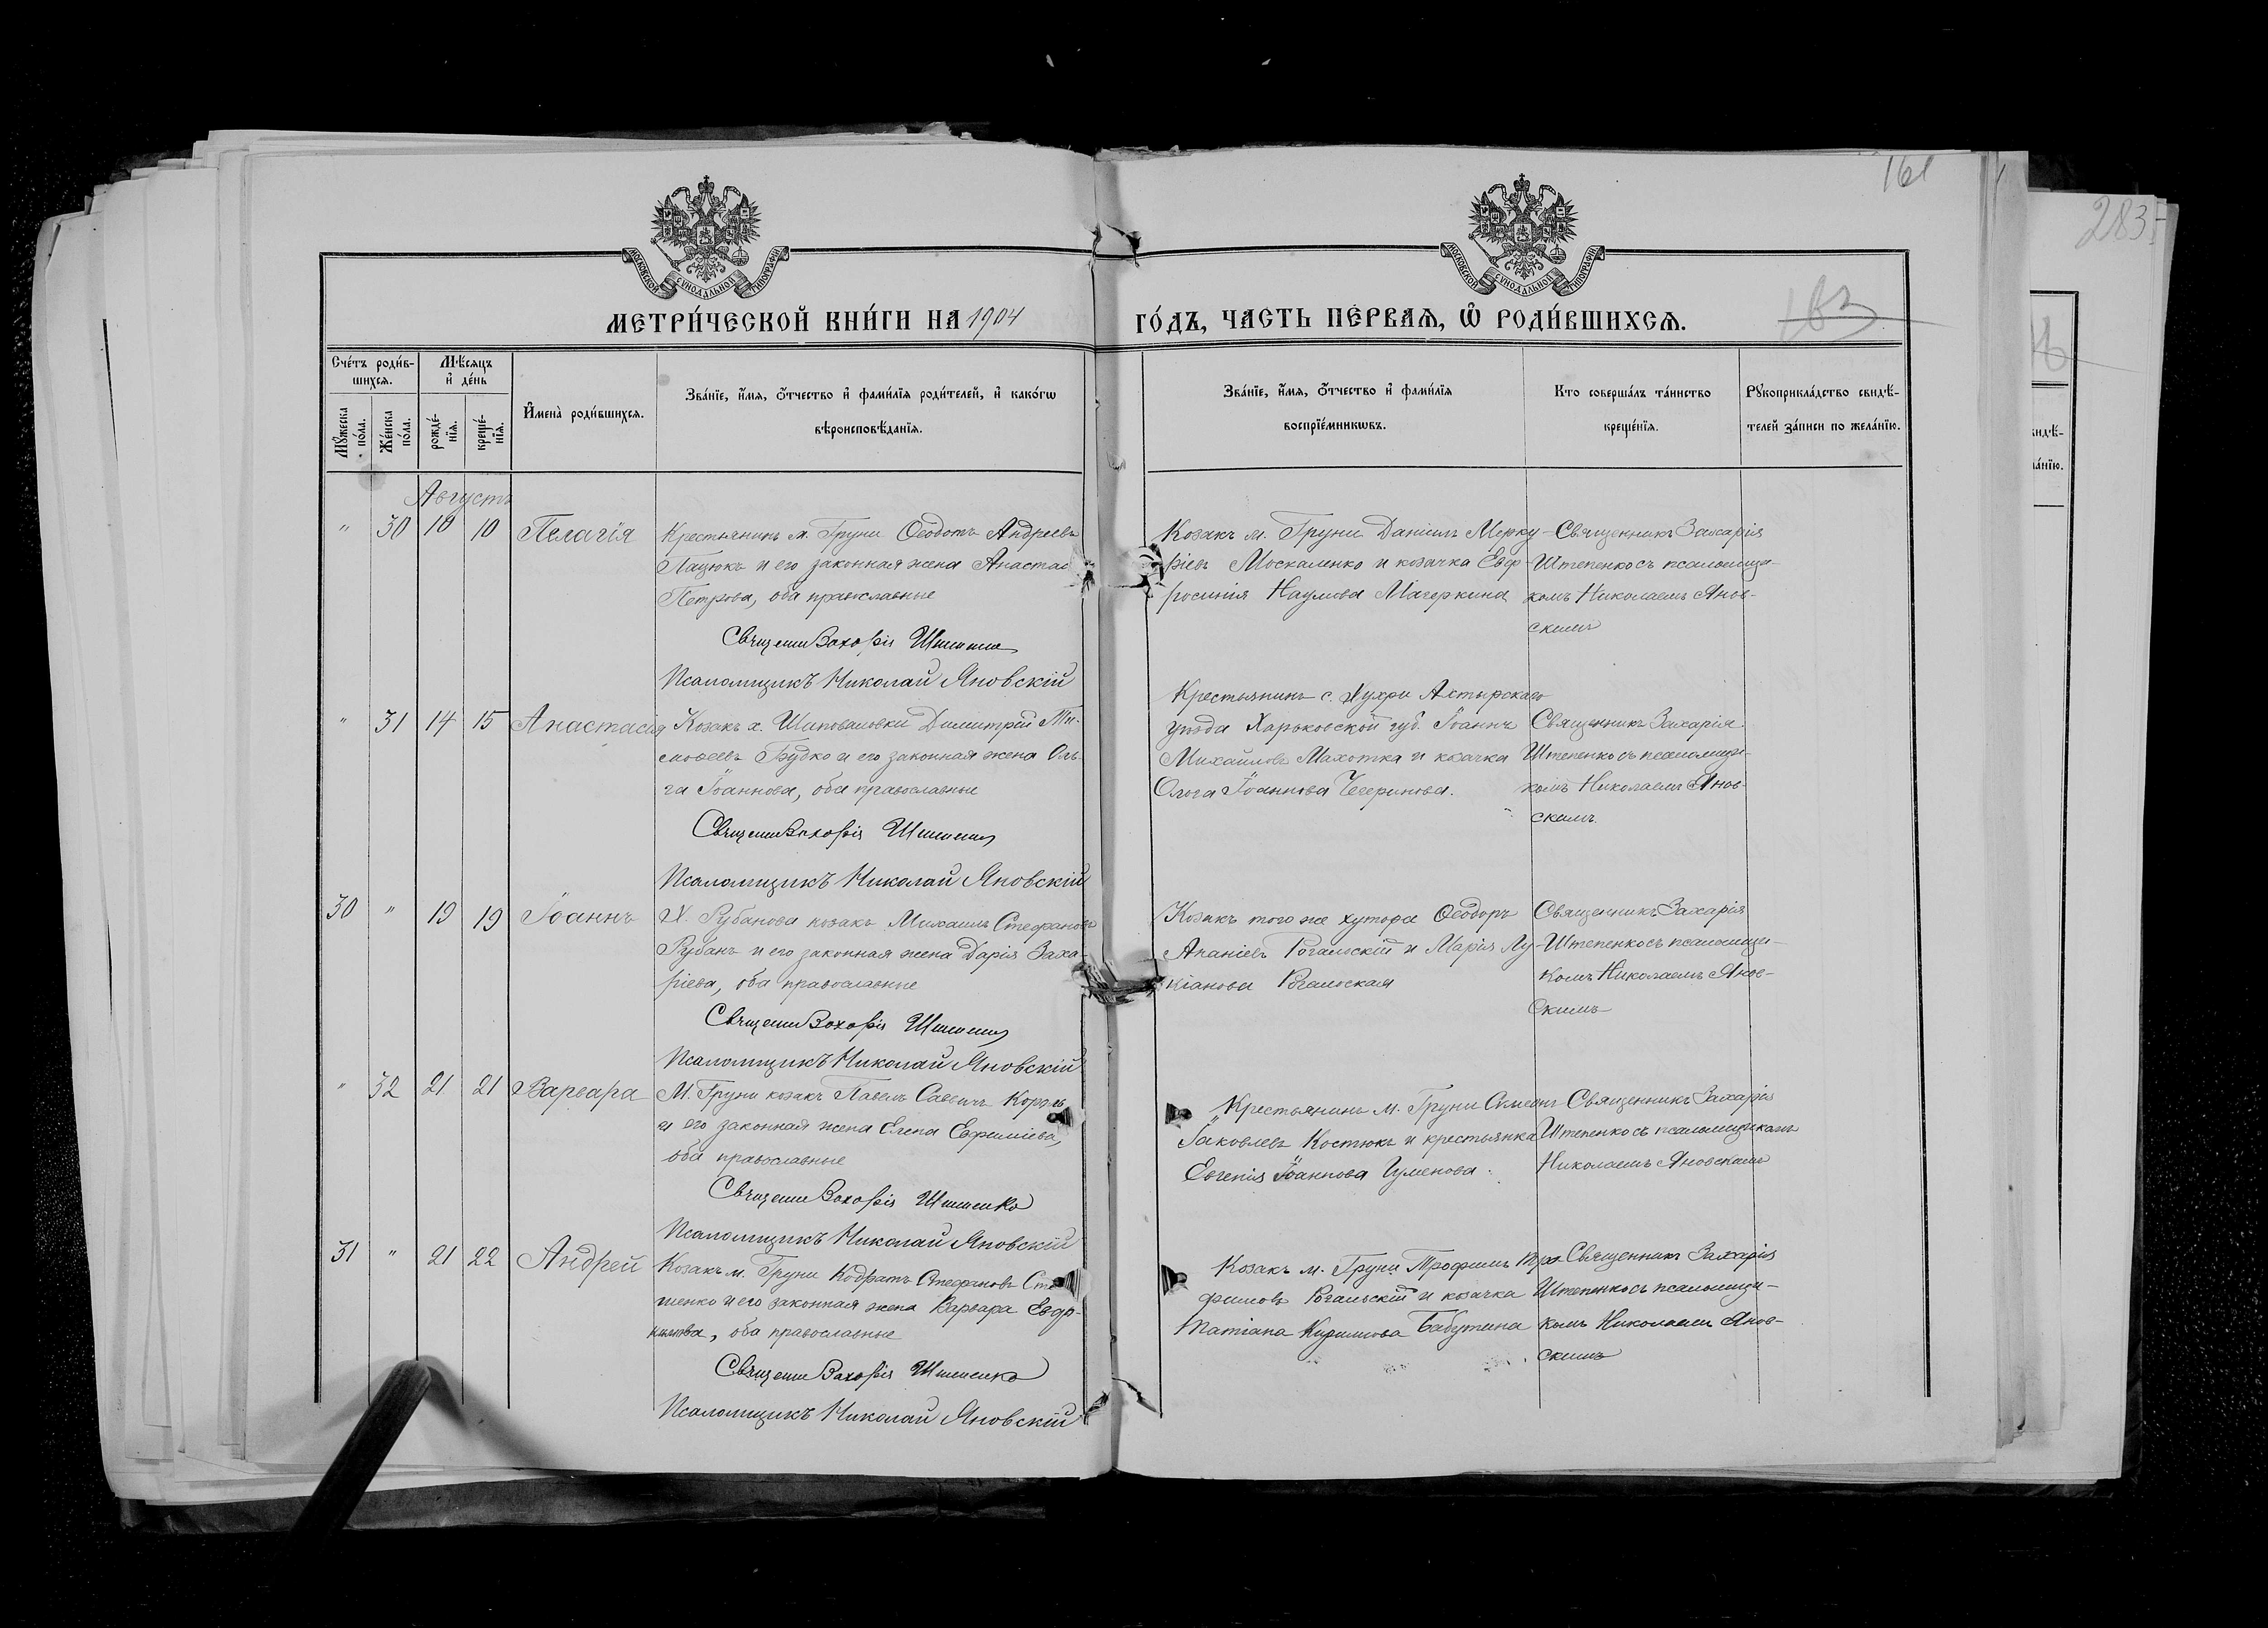 161
283
МОСКОВСКОЙ СѴНОДАЛЬНОЙ ТИПОГРАФІИ
МОСКОВСКОЙ СѴНОДАЛЬНОЙ ТИПОГРАФІИ
МЕТРИ́ЧЕСКОЙ КНИ́ГИ НА 1904
ГО́ДЪ, ЧАСТЬ ПЕ́РВАѦ, Ѡ҆ РОДИ́ВШИХСѦ.
183
Сче́тъ роди́в-
шихсѧ.
Мѣ́сѧцъ
и҆ де́нь
Мꙋ́жеска по́ла.
Же́нска по́ла.
рожде́-
нїѧ.
креще́-
нїѧ.
И҆мена̀ роди́вшихсѧ.
Зва́нїе, и҆́мѧ, ѻ҆́тчество и҆ фами́лїѧ роди́телей, и҆ како́гѡ
вѣроисповѣ́данїѧ.
Зва́нїе, и҆́мѧ, ѻ҆́тчество и҆ фами́лїѧ
воспрїе́мникѡвъ.
Кто соверша́лъ та́инство
креще́нїѧ.
Рꙋкоприкла́дство свидѣ́-
телей за́писи по жела́нїю.
Августъ
" 30 10 10 Пелагія
Крестьянинъ м. Груни Ѳеодотъ Андреевъ
Пацюкъ и его законная жена Анастас
Петрова, оба православные
Священ Захарія
Псаломщикъ Николай Яновскій
Козакъ м. Груни Даніилъ Мерку-
ріевъ Москаленко и козачка Евф-
росинія Наумова Мачеркина
Священникъ Захарія
Штепенко съ псаломщи-
комъ Николаемъ Янов-
скимъ
" 31 14 15 Анастасія
Козакъ х. Шаповаловки Димитрій Ти-
моѳеевъ Будко и его законная жена Оль-
га Іоаннова, оба православные
Священ Захарія
Псаломщикъ Николай Яновскій
Крестьянинъ с. Ахтырскаго
уѣзда Харьковской губ. Іоаннъ
Михайловъ Махотка и козачка
Ольга Іоаннова Чечеринова.
Священникъ Захарія
Штепенко съ псаломщи-
комъ Николаемъ Янов-
скимъ.
30 " 19 19 Іоаннъ
Х. Рубанова козакъ Михаилъ Стефановъ
Рубанъ и его законная жена Дарія Заха-
ріева, оба православные
Священ Захарія
Псаломщикъ Николай Яновскій
Козакъ того же хутора Ѳеодоръ
Ананіевъ Рогальскій и Марія Лу-
кіанова Рогальская
Священникъ Захарія
Штепенко съ псаломщи-
комъ Николаемъ Янов-
скимъ
" 32 21 21 Варвара
М. Груни козакъ Павелъ Саввичъ Король
и его законная жена Елена Евфиміева,
оба православные
Священ Захарія Штепенко
Псаломщикъ Николай Яновскій
Крестьянинъ м. Груни Симеонъ
Іаковлевъ Костюкъ и крестьянка
Евгенія Іоаннова Гуменова.
Священникъ Захарія
Штепенко съ псаломщикомъ
Николаемъ Яновскимъ
31 " 21 22 Андрей
Козакъ м. Груни Кодратъ Стефановъ
и его законная жена Варвара Евдо-
кимова, оба православные
Священ Захарія Штепенко
Псаломщикъ Николай Яновскій
Козакъ м. Груни Трофимъ Тро-
фимовъ Рогальскій и козачка
Татіана Кириллова Бабутина
Священникъ Захарія
Штепенко съ псаломщи-
комъ Николаемъ Янов-
скимъ